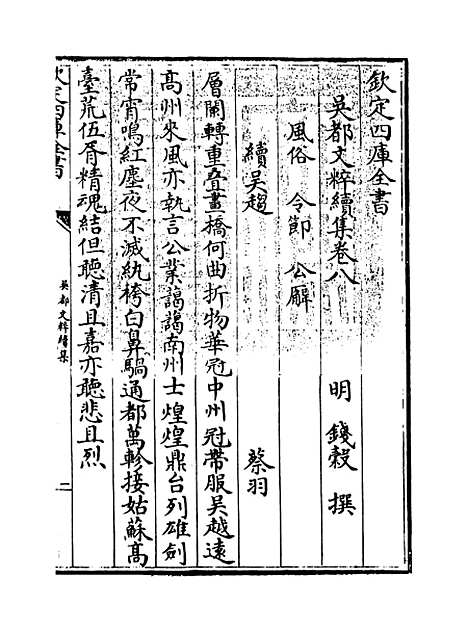 欽定四庫全書
吳都文粹續集卷八
明 錢穀 撰
風俗 令節 公廨
續吳趨 蔡羽
層闌轉重叠畫橋何曲折物華冠中州冠帶服吳越遠
髙州來風亦執言公業藹藹南州士煌煌鼎台列雄劍
常宵鳴紅塵夜不滅紈袴白鼻騧通都萬軫接姑蘇髙
臺荒伍胥精魂結但聽清且嘉亦聽悲且烈
欽定四庫全書
吳都文粹續集
二